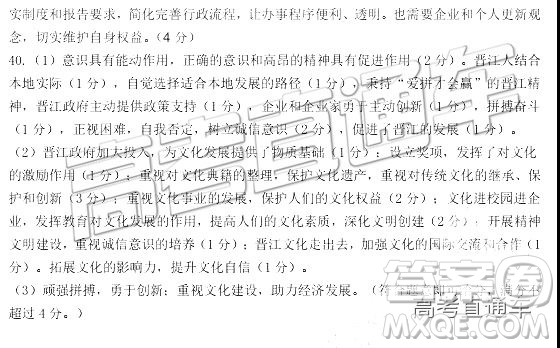 实制度和报告要求，简化完善行政流程，让办事程序便利、透明。也需要企业和个人更新观
念，切实维护自身权益。（4 分）
40.（1）意识具有能动作用，正确的意识和高昂的精神具有促进作用（2 分）。晋江人结合
本地实际（1 分），自觉选择适合本地发展的路径（1 分），秉持“爱拼才会赢”的晋江精
神，晋江政府主动提供政策支持（1 分），企业和企业家勇于主动创新（1 分），拼搏奋斗
（1 分），正视困难，自我否定，树立诚信意识（2 分），促进了晋江的发展（1 分）。
（2）晋江政府加大投入，为文化发展提供了物质基础（1 分）；设立奖项，发挥了对文化
的激励作用（1 分）；重视对文化典籍的整理，保护文化遗产，重视对传统文化的继承、保
护和创新（3 分）；重视文化事业的发展，保护人们的文化权益（2 分）；文化进校园进企
业，发挥教育对文化发展的作用，提高人们的文化素质，深化文明创建（2 分）；开展精神
文明建设，重视诚信意识的培养（1 分）；晋江文化走出去，加强文化的国际交流和合作（1
分）。拓展文化的影响力，提升文化自信（1 分）。
（3）顽强拼搏，勇于创新；重视文化建设，助力经济发展。（符
超过 4 分。）
高考直通车
答案圈
高考直通车